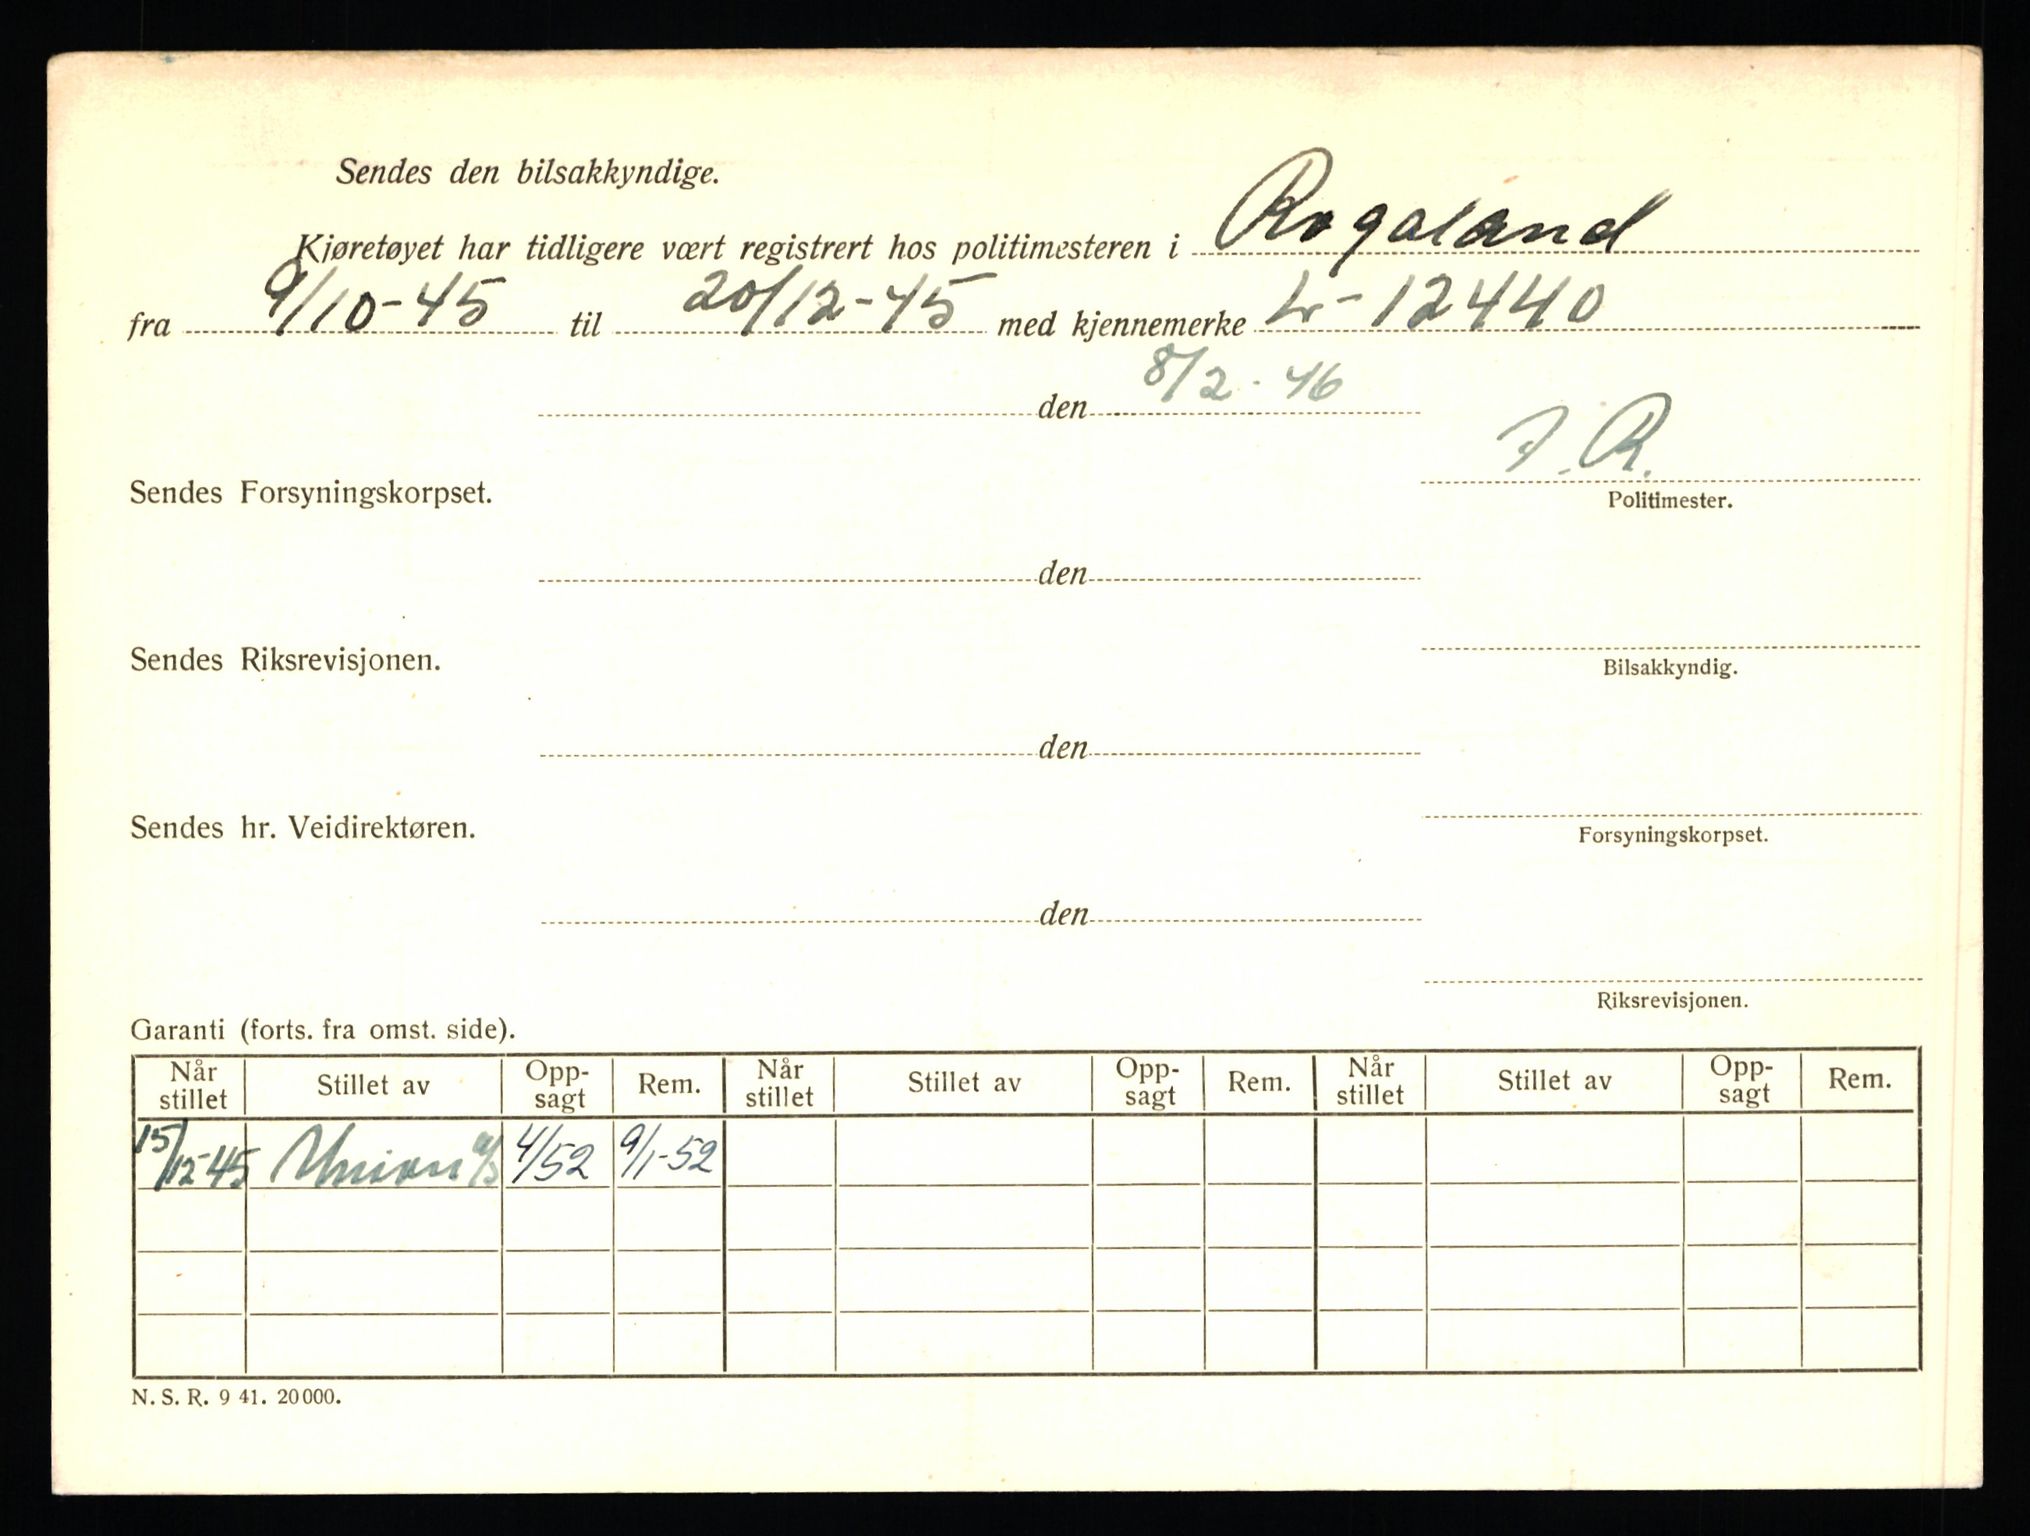 Sendes den bilsakkyndige.
Kjøretøyet har tidligere vært registrert hos politimesteren i Rogaland
fra 9/10-45 til 20/12-45 med kjennemerke L-12440
den 8/2-46
Sendes Forsyningskorpset.
Politimester.
den
Sendes Riksrevisjonen.
Bilsakkyndig.
den
Sendes hr. Veidirektøren.
Forsyningskorpset.
den
Riksrevisjonen.
Garanti (forts. fra omst. side).
Når stillet Stillet av Opp-sagt Rem. Når stillet Stillet av Opp-sagt Rem. Når stillet Stillet av Opp-sagt Rem.
15/12-45 Union a/s 4/52 9/1-52
N. S. R. 9 41. 20000.